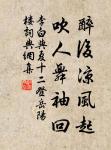 醉後凉風起
吹人舞袖回
李白與夏十二登岳陽
樓詞典網集